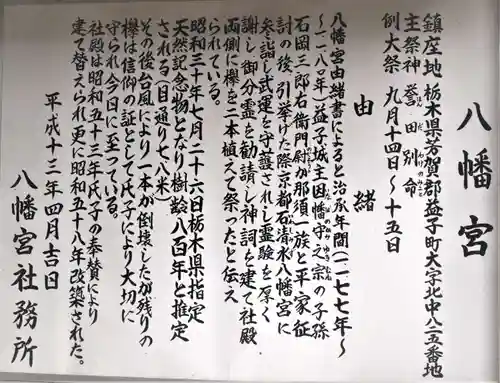 八幡宮
鎮座地 栃木県芳賀郡益子町大字北中八二五番地
主祭神 誉田別命
例大祭 九月十四日〜十五日
由緒
八幡宮由緒書によると治承年間(一一七七年〜
〜一一八〇年)益子城主因幡守之宗の子孫
石岡三郎右衛門尉が那須一族と平家征
討の後、引挙げた際京都石清水八幡宮に
参詣し武運を守護されし霊験を厚く
謝し御分霊を勧請し神詞を建て社殿
両側に欅を二本植えて祭ったと伝え
られている。
昭和三十年七月二十六日栃木県指定
天然記念物となり樹齢八百年と推定
される(目通り七八米)
その後台風により一本が倒壊したが残りの
欅は信仰の証として氏子により大切に
守られ今日に至っている。
社殿は昭和五十三年氏子の奉賛により
建て替えられ更に昭和五十八年改築された。
平成十三年四月吉日
八幡宮社務所